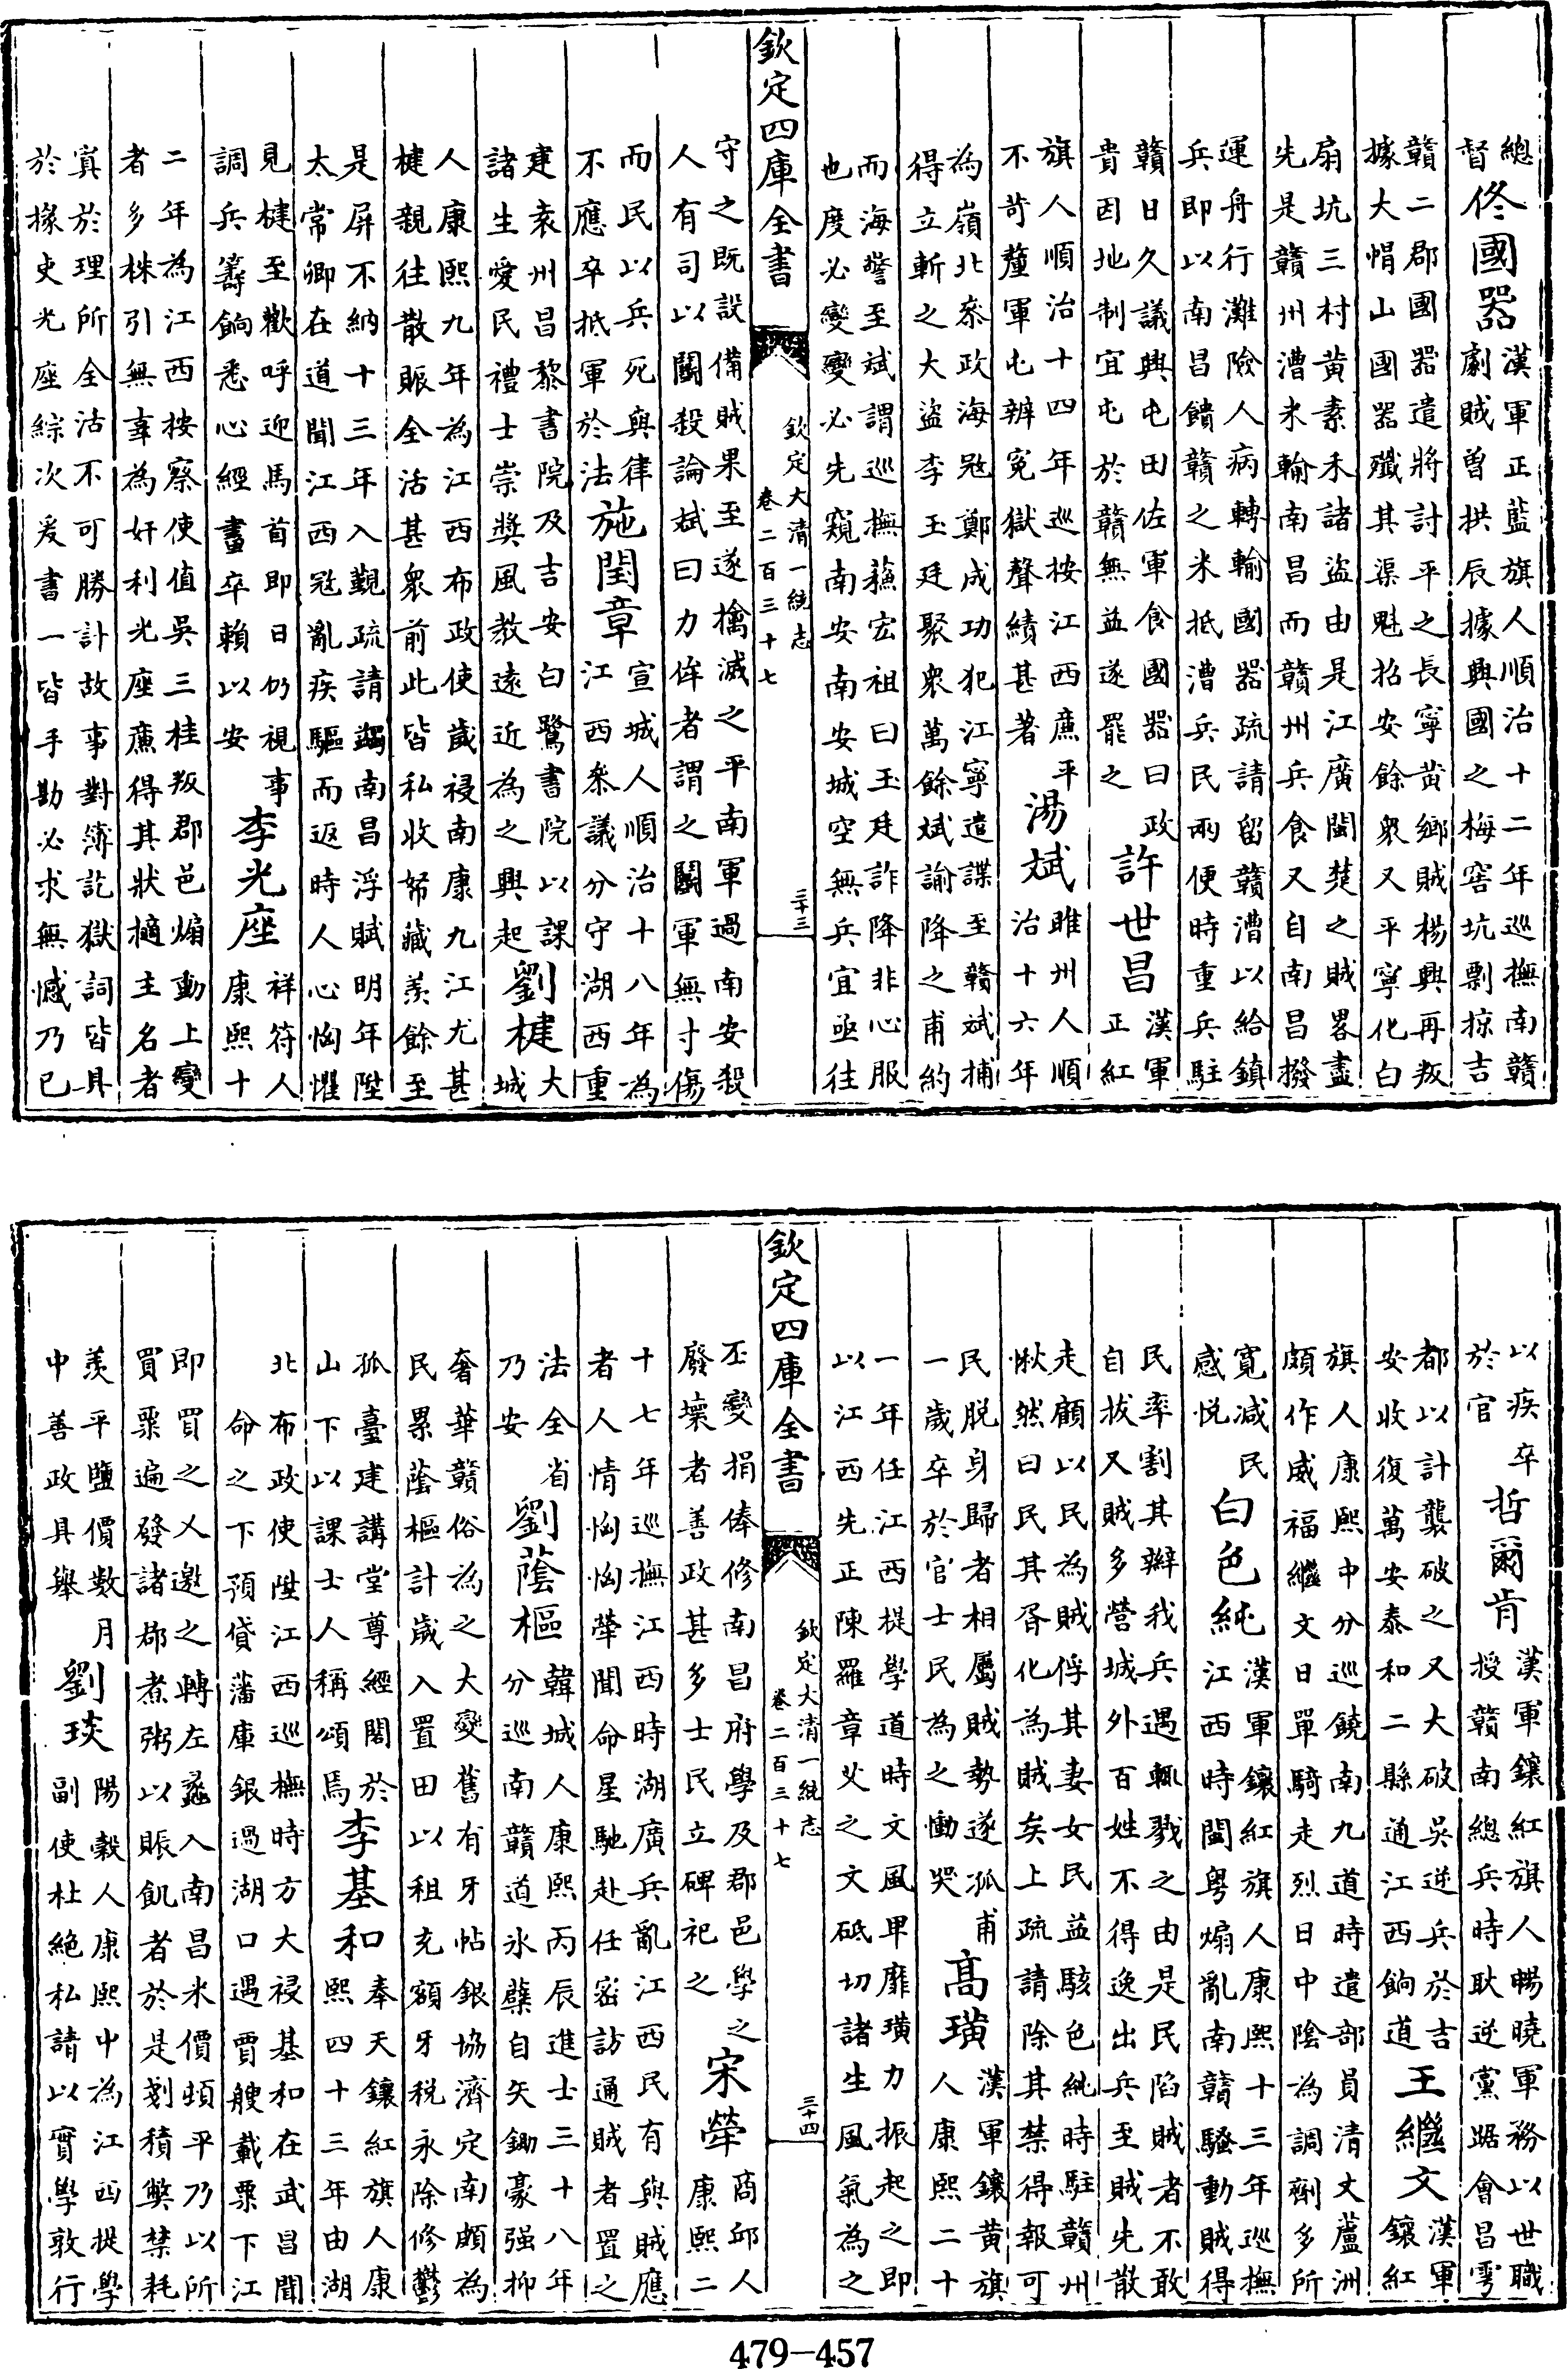 總督
佟國器
漢軍正藍旗人順治十二年巡撫南贛
劇賊曾拱辰據興國之梅窖坑剽掠吉
贛二郡國器遣將討平之長寧黃鄉賊楊興再叛
據大帽山國器殲其渠魁招安餘衆又平寧化白
扇坑三村黃素禾諸盜由是江廣閩楚之賊畧盡
先是贛州漕米輸南昌而贛州兵食又自南昌撥
運舟行灘險人病轉輸國器疏請留贛漕以給鎮
兵即以南昌饋贛之米抵漕兵民兩便時重兵駐
贛日久議興屯田佐軍食國器曰政
貴因地制宜屯於贛無益遂罷之
許世昌
漢軍
正紅
旗人順治十四年巡按江西廉平
不苛釐軍屯辨寃獄聲績甚著
湯斌
睢州人順
治十六年
為嶺北叅政海冦鄭成功犯江寧遣諜至贛斌捕
得立斬之大盜李玉廷聚衆萬餘斌諭降之甫約
而海警至斌謂巡撫蘓宏祖曰玉廷詐降非心服
也度必變變必先窺南安南安城空無兵宜亟往
欽定四庫全書
欽定大清一統志
卷二百三十七
三十三
守之既設備賊果至遂擒滅之平南軍過南安殺
人有司以鬭殺論斌曰力侔者謂之鬭軍無寸傷
而民以兵死與律
不應卒抵軍於法
施閏章
宣城人順治十八年為
江西叅議分守湖西重
建袁州昌黎書院及吉安白鷺書院以課
諸生愛民禮士崇奬風教遠近為之興起
劉楗
大
城
人康熙九年為江西布政使歲祲南康九江尤甚
楗親往散賑全活甚衆前此皆私收帑藏羨餘至
是屏不納十三年入覲疏請蠲南昌浮賦明年陞
太常卿在道聞江西冦亂疾驅而返時人心恟懼
見楗至歡呼迎馬首即日仍視事
調兵籌餉悉心經畫卒賴以安
李光座
祥符人
康熙十
二年為江西按察使值吳三桂叛郡邑煽動上變
者多株引無辜為奸利光座廉得其狀擿主名者
寘於理所全活不可勝計故事對簿訖獄詞皆具
於掾吏光座綜次爰書一皆手勘必求無憾乃已
以疾卒
於官
哲爾肯
漢軍鑲紅旗人暢曉軍務以世職
授贛南總兵時耿逆黨踞會昌雩
都以計襲破之又大破吳逆兵於吉
安收復萬安泰和二縣通江西餉道
王繼文
漢軍
鑲紅
旗人康熙中分巡饒南九道時遣部員清丈蘆洲
頗作威福繼文日單騎走烈日中陰為調劑多所
寛減民
感悅
白色純
漢軍鑲紅旗人康熙十三年巡撫
江西時閩粵煽亂南贛騷動賊得
民率割其辮我兵遇輒戮之由是民陷賊者不敢
自拔又賊多營城外百姓不得逸出兵至賊先散
走顧以民為賊俘其妻女民益駭色純時駐贛州
愀然曰民其胥化為賊矣上疏請除其禁得報可
民脫身歸者相屬賊勢遂孤甫
一歲卒於官士民為之慟哭
高璜
漢軍鑲黃旗
人康熙二十
一年任江西提學道時文風卑靡璜力振起之即
以江西先正陳羅章艾之文砥切諸生風氣為之
欽定四庫全書
欽定大清一統志
卷二百三十七
三十四
丕變捐俸修南昌府學及郡邑學之
廢壞者善政甚多士民立碑祀之
宋犖
商邱人
康熙二
十七年巡撫江西時湖廣兵亂江西民有與賊應
者人情恟恟犖聞命星馳赴任密訪通賊者置之
法全省
乃安
劉蔭樞
韓城人康熙丙辰進士三十八年
分巡南贛道氷蘖自矢鋤豪强抑
奢華贛俗為之大變舊有牙帖銀協濟定南頗為
民累蔭樞計歲入置田以租充額牙稅永除修鬱
孤臺建講堂尊經閣於
山下以課士人稱頌焉
李基和
奉天鑲紅旗人康
熙四十三年由湖
北布政使陞江西巡撫時方大祲基和在武昌聞
命之下預貸藩庫銀過湖口遇賈艘載粟下江
即買之又邀之轉左蠡入南昌米價頓平乃以所
買粟遍發諸郡煮粥以賑飢者於是剗積弊禁耗
羨平鹽價數月
中善政具舉
劉琰
陽穀人康熙中為江西提學
副使杜絕私請以實學敦行
479-457